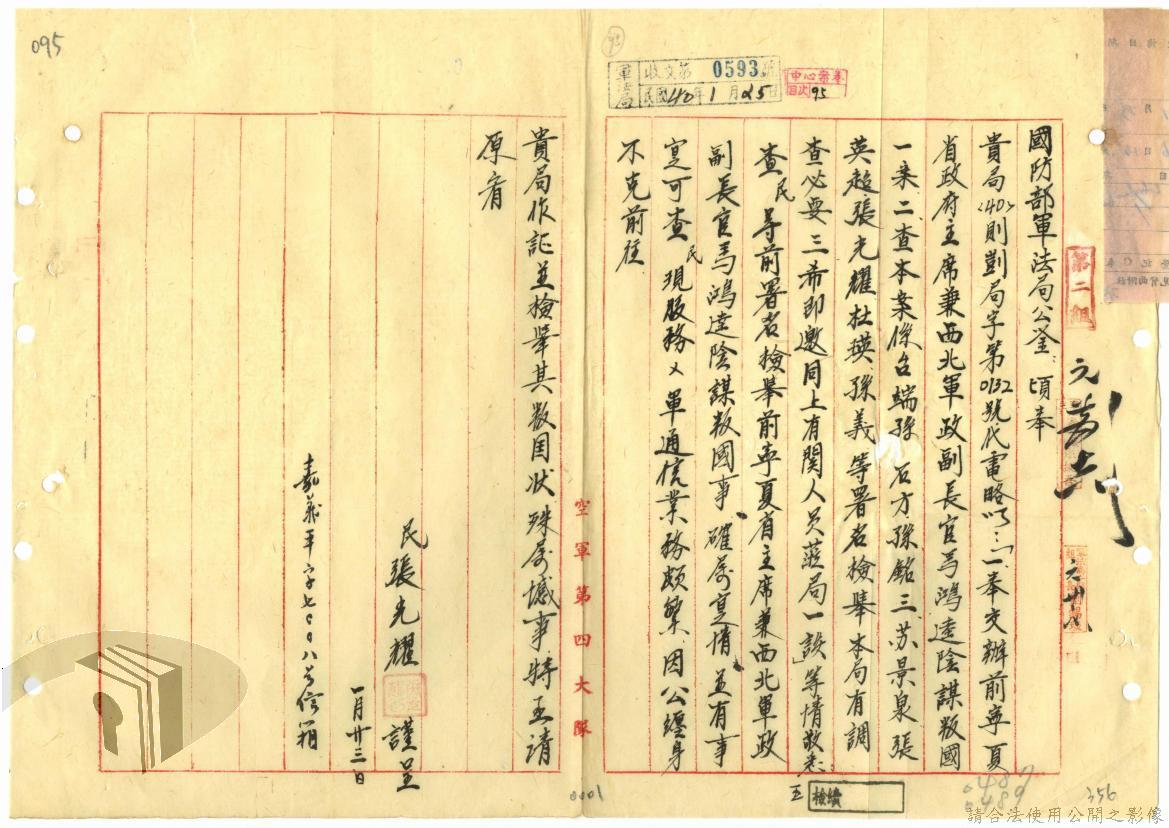 095
95
軍法局
收文第0593號
民國40年1月25日
中心案卷
目次 95
第二組
國防部軍法局公鑒：頃奉
貴局(40)則剴局字第0132號代電略以：「一、奉交辦前寧夏
省政府主席兼西北軍政副長官馬鴻逵陰謀叛國
一案二、查本案係台端孫　石方孫銘三、苏景泉張
英超張光耀杜瑛孫義等署名檢舉本局有調
查必要三希即邀同上有関人员蒞局一談」等情敬悉：
查民等前署名檢舉前寧夏省主席兼西北軍政
副長官馬鴻逵陰謀叛國事、確属寔情並有事
寔可查民現服務×單通信業務頗繁因公纏身
不克前往
空軍第四大隊
貴局作証並檢舉其叛国状殊属憾事特函請
原宥
民張光耀謹呈
一月廿三日
嘉義平字七〇〇八号信箱
檢續
0001
487
489
356
請合法使用公開之影像